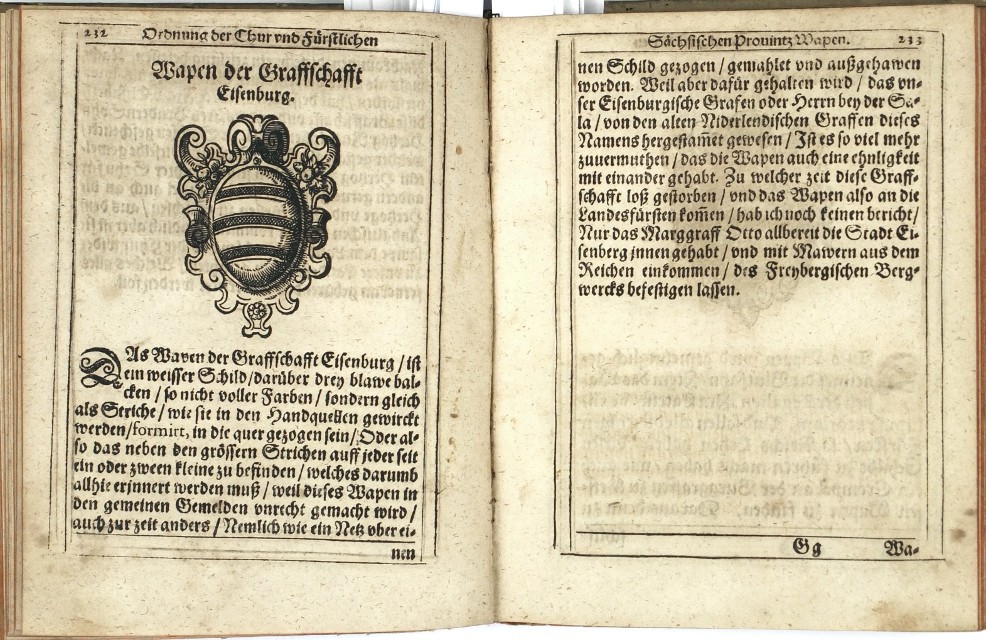 232 Ordnung der Chur vnd Fürstlichen
Wapen der Graffschafft
Eisenburg.
DAs Wapen der Graffschafft Eisenburg / ist
ein weisser Schild / darüber drey blawe bal-
cken / so nicht voller Farben / sondern gleich
als Striche / wie sie in den Handquellen gewirckt
werden / formirt, in die quer gezogen sein / Oder al-
so das neben den grössern Strichen auff jeder seit
ein oder zween kleine zu befinden / welches darumb
allhie erjnnert werden muß / weil dieses Wapen in
den gemeinen Gemelden vnrecht gemacht wird /
auch zur zeit anders / Nemlich wie ein Netz vber ei-
nen
Sächsischen Prouintz Wapen. 233
nen Schild gezogen / gemahlet vnd außgehawen
worden. Weil aber dafür gehalten wird / das vn-
ser Eisenburgische Grafen oder Herrn bey der Sa-
la / von den alten Niderlendischen Graffen dieses
Namens hergestam̃et gewesen / Ist es so viel mehr
zuuermuthen / das die Wapen auch eine ehnligkeit
mit einander gehabt. Zu welcher zeit diese Graff-
schafft loß gestorben / vnd das Wapen also an die
Landesfürsten kom̃en / hab ich noch keinen bericht /
Nur das Marggraff Otto allbereit die Stadt Ei-
senberg jnnen gehabt / vnd mit Mawern aus dem
Reichen einkommen / des Freybergischen Berg-
wercks befestigen lassen.
Gg Wa-